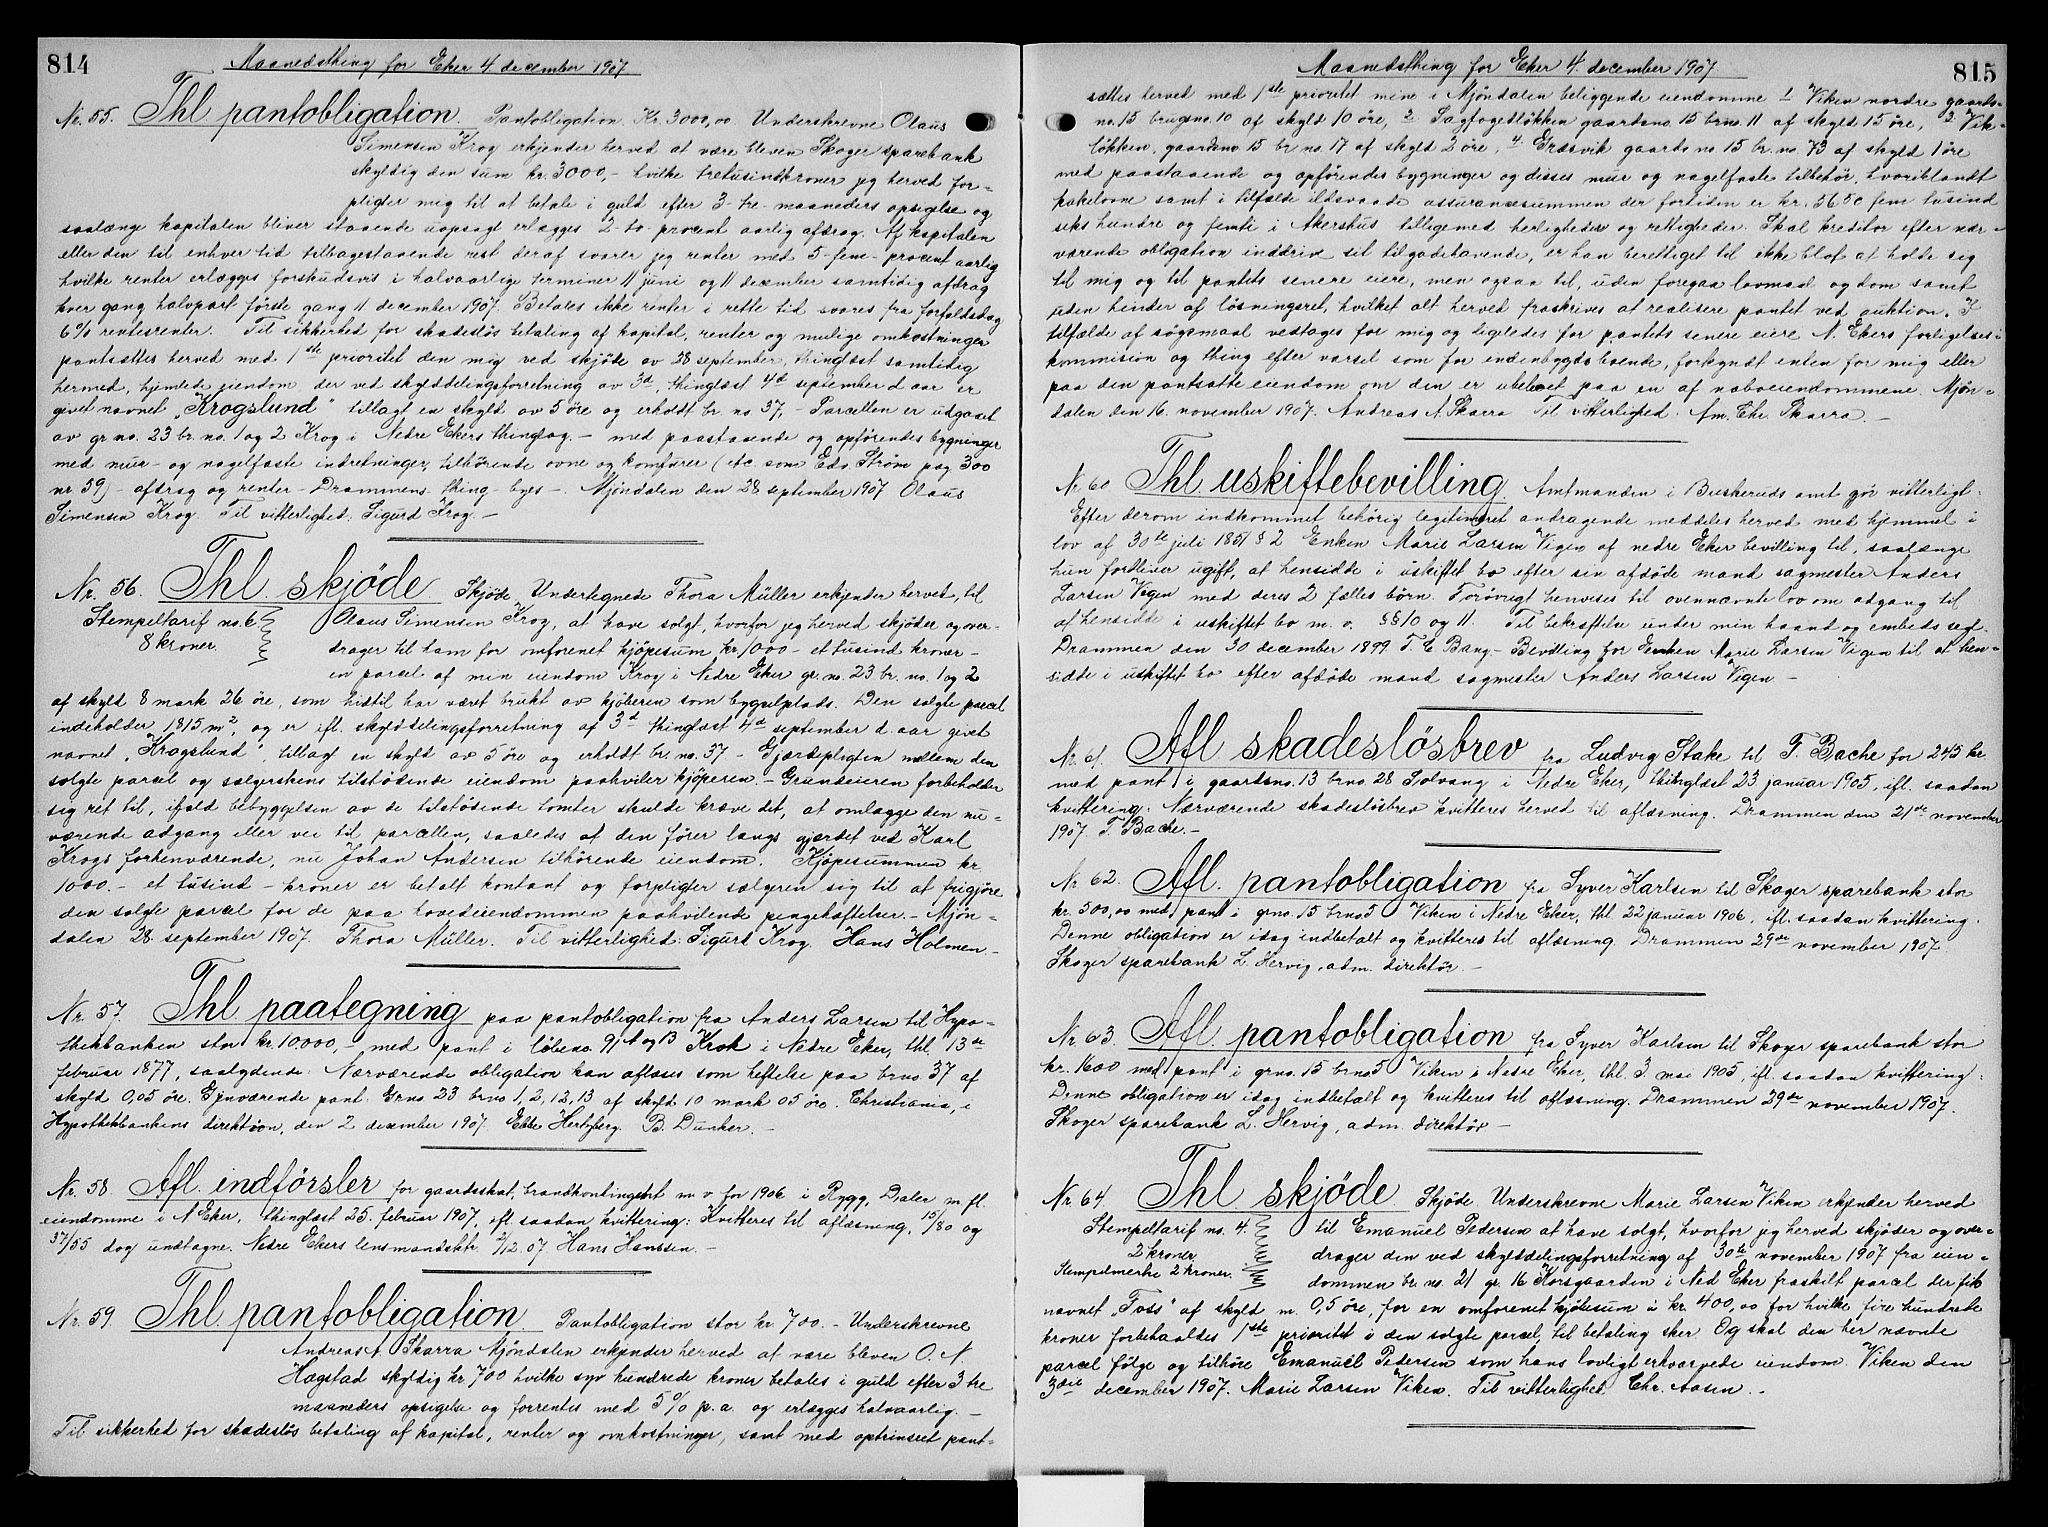 814
Maanedsthing for Eker 4 december 1907
Nr. 55. Thl pantobligation. Pantobligation Kr. 3000,00 Underskrevne Olaus
Simensen Krog erkjender herved at være bleven Skoger sparebank
skyldig den sum kr. 3000,- hvilke tretusindkroner jeg herved for-
pligter mig til at betale i guld efter 3-tre-maaneders opsigelse og
saalænge kapitalen bliver staaende uopsagt erlægges 2-to-procent aarlig afdrag. Af kapitalen
eller den til enhver tid tilbagestaaende rest deraf svarer jeg renter med 5-fem-procent aarlig
hvilke renter erlægges forskudsvis i halvaarlige terminer 11 juni og 11 december samtidig afdrag
hver gang halvpart første gang 11 december 1907. Betales ikke renter i rette tid svares fra forfaldsdag
6% rentesrenter. Til sikkerhed for skadesløs betaling af kapital, renter og mulige omkostninger
pantsættes herved med 1ste prioritet den mig ved skjøte av 28 september, thinglæst samtidig
hermed, hjemlede eiendom der ved skylddelingsforretning av 3d, thinglæst 4d september d. aar er
givet navnet „Krogslund" tillagt en skyld av 5 øre og erholdt br. no 37, - Parcellen er udgaaet
av gr. no. 23 br. no. 1 og 2 Krog i Nedre Ekers thinglag. - med paastaaende og opførendes bygninger
med mur- og nagelfaste indretninger, tilhørende ovne og komfurer (etc. som Edv. Strøm pag 300
nr 59) - afdrag og renter - Drammens thing - byes -. Mjøndalen den 28 september 1907 Olaus
Simensen Krog. Til vitterlighed: Sigurd Krog. -
Nr. 56. Thl. skjøde Skjøde Undertegnede Thora Müller erkjender herved, til
Stempeltarif no. 6 Olaus Simensen Krog, at have solgt, hvorfor jeg herved skjøder og over-
8 kroner. drager til ham for omforenet kjøpesum kr. 1000 - et tusind kroner -
en parcel af min eiendom Krog i Nedre Eker gr. no. 23 br. no. 1 og 2
af skyld 8 mark 26 øre, som hidtil har været brukt av kjøberen som byggeplads. Den solgte parcel
indeholder 1815 m², og er ifl. skylddelingsforretning af 3d thinglæst 4d september d. aar givet
navnet „Krogslund", tillagt en skyld av 5 øre og erholdt br. no. 37 - Gjærdepligten mellem den
solgte parcel og sælgerskens tilstødende eiendom paahviler kjøperen - Grundeieren forbeholder
sig ret til, ifald bebyggelsen av de tilstødende tomter skulde kræve det, at omlægge den nu-
værende adgang eller vei til parcellen, saaledes at den fører langs gjerdet ved Karl
Krogs forhenværende, nu Johan Andersen tilhørende eiendom. Kjøpesummen kr
1000.- et tusind - kroner er betalt kontant og forpligter sælgeren sig til at frigjøre
den solgte parcel for de paa hovedeiendommen paahvilende pengehæftelser. - Mjøn-
dalen 28. september 1907. Thora Müller. Til vitterlighed: Sigurd Krog. Hans Holmen. -
Nr. 57. Thl paategning paa pantobligation fra Anders Larsen til Hypo-
thekbanken stor kr. 10.000,- med pant i løbeno. 91 A og B Krok i Nedre Eker, thl. 13de
februar 1877, saalydende: Nærværende obligation kan aflæses som heftelse paa brno 37 af
skyld 0,05 øre. Gjenværende pant: Grno 23 brno 1, 2, 12, 13 af skyld 10 mark 05 øre. Christiania, i
Hypothekbankens direktion, den 2 december 1907. Ebbe Hertzberg. B. Dunker. -
Nr. 58. Afl. indførsler for gaardsskat, brandkontingent m v. for 1906 i Rygg, Daler m. fl.
eiendomme i N Eker, thinglæst 25. februar 1907, ifl. saadan kvittering: Kvitteres til aflæsning, 15/80 og
57/55 dog undtagne. Nedre Ekers lensmandsktr. 2/12 07 Hans Hanssen. -
Nr. 59. Thl pantobligation Pantobligation stor kr. 700. - Underskrevne
Andreas A. Skarra Mjøndalen erkjender herved at være bleven O. N.
Hagstad skyldig kr. 700 hvilke syv hundrede kroner betales i guld efter 3 tre
maaneders opsigelse og forrentes med 5% p. a. og erlægges halvaarlig. -
Til sikkerhed for skadesløs betaling af kapital, renter og omkostninger, samt med optrinsret pant-
815
Maanedsthing for Eker 4. december 1907
sættes herved med 1ste prioritet mine i Mjøndalen beliggende eiendomme 1 Viken nordre gaards-
no. 15 brugsno. 10 af skyld 10 øre, 2 Sagfogedløkken gaardsno. 15 brno. 11 af skyld 15 øre, 3 Vik-
løkken, gaardsno 15 br. no. 17 af skyld 2 øre, 4. Græsvik gaards no 15 br. no. 73 af skyld 1 øre
med paastaaende og opførendes bygninger og disses mur og nagelfaste tilbehør, hvoriblandt
kakelovne samt i tilfælde ildsvaade assurancesummen der fortiden er kr. 5650 fem tusind
seks hundre og femti i Akershus tilligemed herligheder og rettigheder. Skal kreditor efter nær-
værende obligation inddrive sit tilgodehavende, er han berettiget til ikke blot at holde sig
til mig og til pantets senere eiere, men ogsaa til, uden foregaa lovmaal og dom samt
uden hinder af løsningsret, hvilket alt herved fraskrives at realisere pantet ved auktion. I
tilfælde af søgemaal vedtages for mig og ligeledes for pantets senere eiere N. Ekers forligelses-
kommision og thing efter varsel som for indenbygdsboende, forkyndt enten for mig eller
paa den pantsatte eiendom om den er ubeboet paa en af naboeiendommene. Mjøn-
dalen den 16. november 1907. Andreas A. Skarra Til vitterlighed: Am. Chr. Skarra. -
Nr 60 Thl uskiftebevilling. Amtmanden i Buskeruds amt gjør vitterligt:
Efter derom indkommet behørig legitimeret andragende meddeles herved med hjemmel i
lov af 30te juli 1851 § 2 Enken Marie Larsen Vigen af nedre Eker bevilling til, saalænge
hun forbliver ugift, at hensidde i uskiftet bo efter sin afdøde mand sagmester Anders
Larsen Vigen med deres 2 fælles børn. Forøvrigt henvises til ovennævnte lov om adgang til
at hensidde i uskiftet bo m. v. §§ 10 og 11. Til bekræftelse under min haand og embeds segl.
Drammen den 30 december 1899. T. C Bang - Bevilling for Enken Marie Larsen Vigen til at hen-
sidde i uskiftet bo efter afdøde mand sagmester Anders Larsen Vigen -
Nr. 61. Afl skadesløsbrev fra Ludvig Stake til F. Bache for 245 kr.
med pant i gaardsno. 13 brno 28 Solvang i Nedre Eker, thinglæst 23 januar 1905, ifl. saadan
kvittering: Nærværende skadesløsbrev kvitteres herved til aflæsning. Drammen den 21de november
1907 F. Bache. -
Nr 62. Afl. pantobligation fra Syver Karlsen til Skoger sparebank stor
kr. 500,00 med pant i grno. 15 brno 5 Viken i Nedre Eker, thl. 22 januar 1906, ifl. saadan kvittering:
Denne obligation er idag indbetalt og kvitteres til aflæsning. Drammen 29de november 1907
Skoger sparebank L. Hervig, adm. direktør. -
Nr 63. Afl. pantobligation fra Syver Karlsen til Skoger sparebank stor
kr. 1600 med pant i grno. 15 brno 5 Viken i Nedre Eker, thl. 3 mai 1905, ifl. saadan kvittering:
Denne obligation er idag indbetalt og kvitteres til aflæsning. Drammen 29de november 1907.
Skoger sparebank L. Hervig, adm. direktør -
Nr 64. Thl skjøde. Skjøde Underskrevne Marie Larsen Viken erkjender herved
Stempeltarif no. 4. til Emanuel Pedersen at have solgt, hvorfor jeg herved skjøder og over-
2 kroner drager den ved skylddelingsforretning af 30te november 1907 fra eien-
Stempelmerke 2 kroner. dommen br. no. 21 gr. 16 Korsgaarden i Ned Eker fraskilt parcel der fik
navnet „Foss" af skyld m. 0,5 øre, for en omforenet kjøbesum à kr. 400,00 for hvilke fire hundrede
kroner forbeholdes 1ste prioritet i den solgte parcel, til betaling sker. Og skal den her nævnte
parcel følge og tilhøre Emanuel Pedersen som hans lovligt erhvervede eiendom. Viken den
3die december 1907. Marie Larsen Viken. Til vitterlighed: Chr. Aasen. -